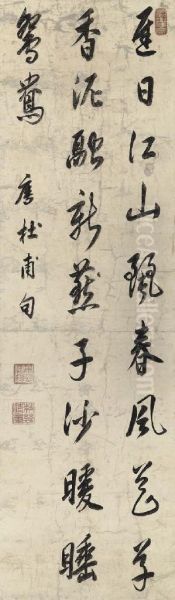 遲日江山麗春風花草
香泥融飛燕子沙暖睡
鴛鴦
唐杜甫句